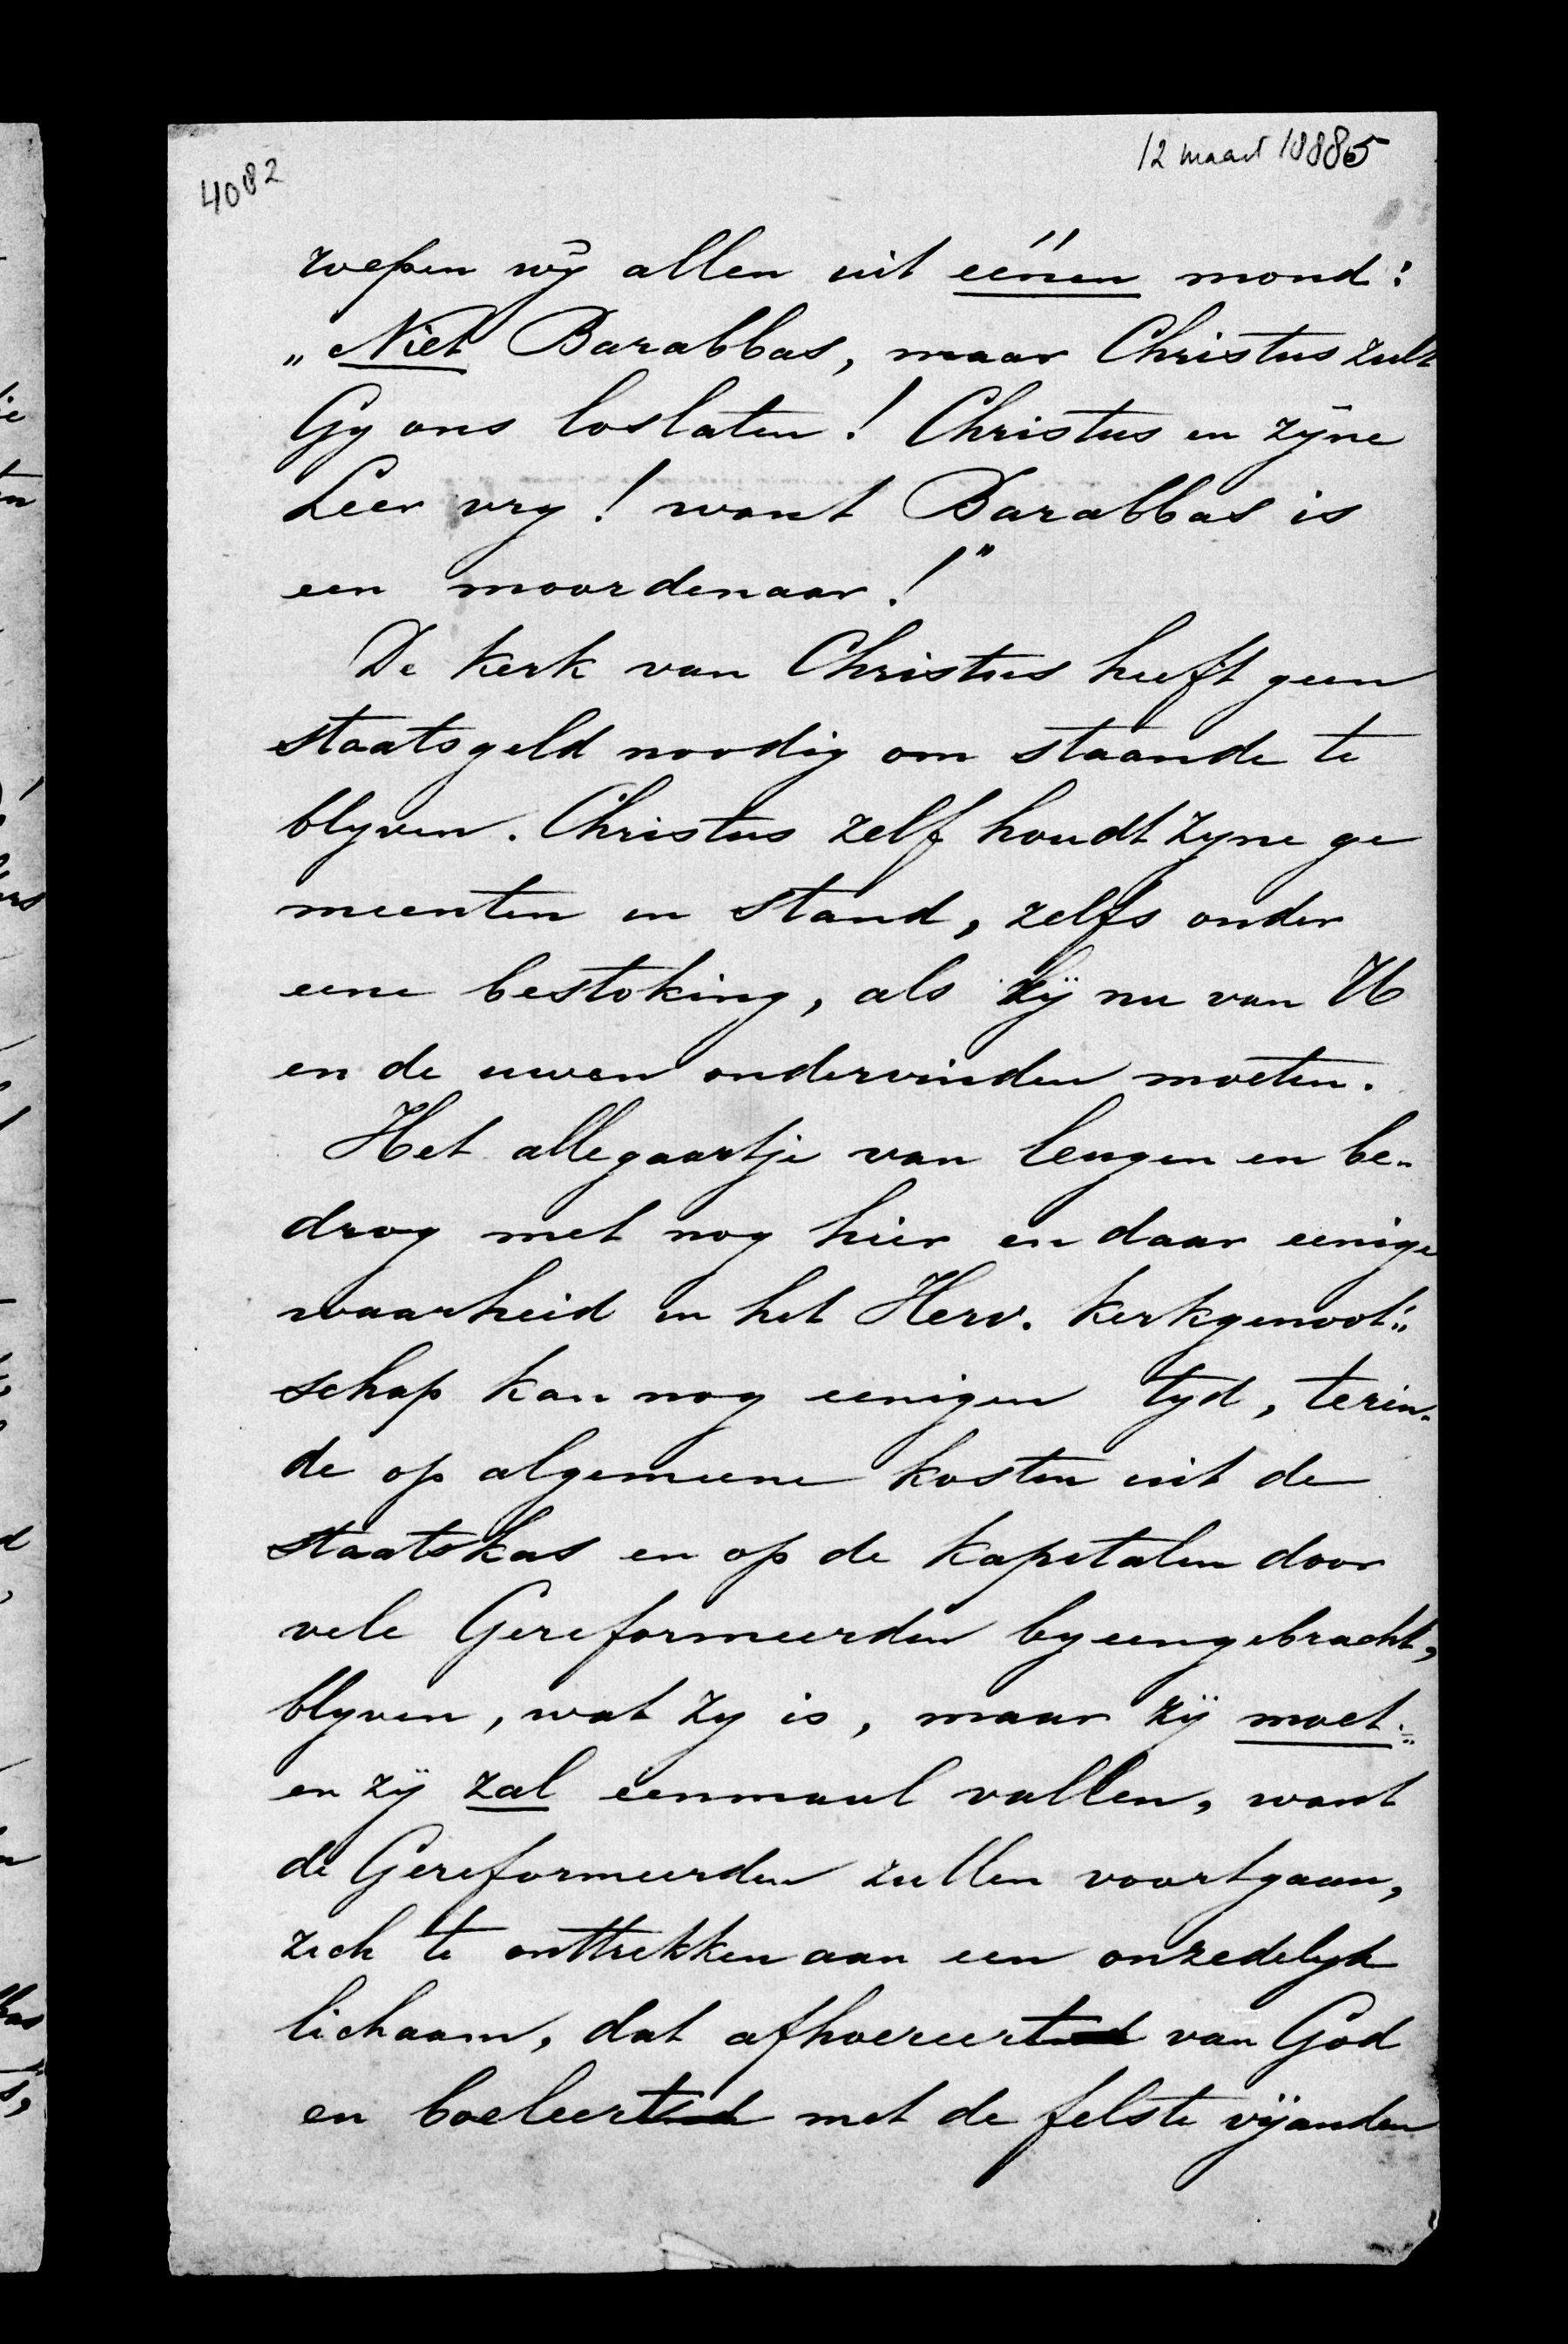 4082
12 maart 18885
roepen wij allen uit eénén mond:
„Niet Barabbas, maar Christus zult
Gy ons loslaten! Christus en zijne
Leer vry! want Barabbas is
een moordenaar!"
De kerk van Christus heeft geen
staatsgeld noodig om staande te
blyven. Christus zelf houdt zyne ge
meenten in stand, zelfs onder
eene bestoking, als zij nu van U
en de uwen ondervinden moeten.
Het allegaartje van leugen en be-
drog met nog hier en daar eenige
waarheid in het Herv. kerkgenoot=
schap kan nog eenigen tyd, terin-
de op algemeene kosten uit de
staatskas en op de kapitalen door
vele Gereformeerden byeengebracht,
blyven, wat zy is, maar zij moet
en zij zal eenmaal vallen, want
de Gereformeerden zullen voortgaan,
zich te onttrekken aan een onzedelyk
lichaam, dat afhoereert van God
en boeleert met de felste vijanden